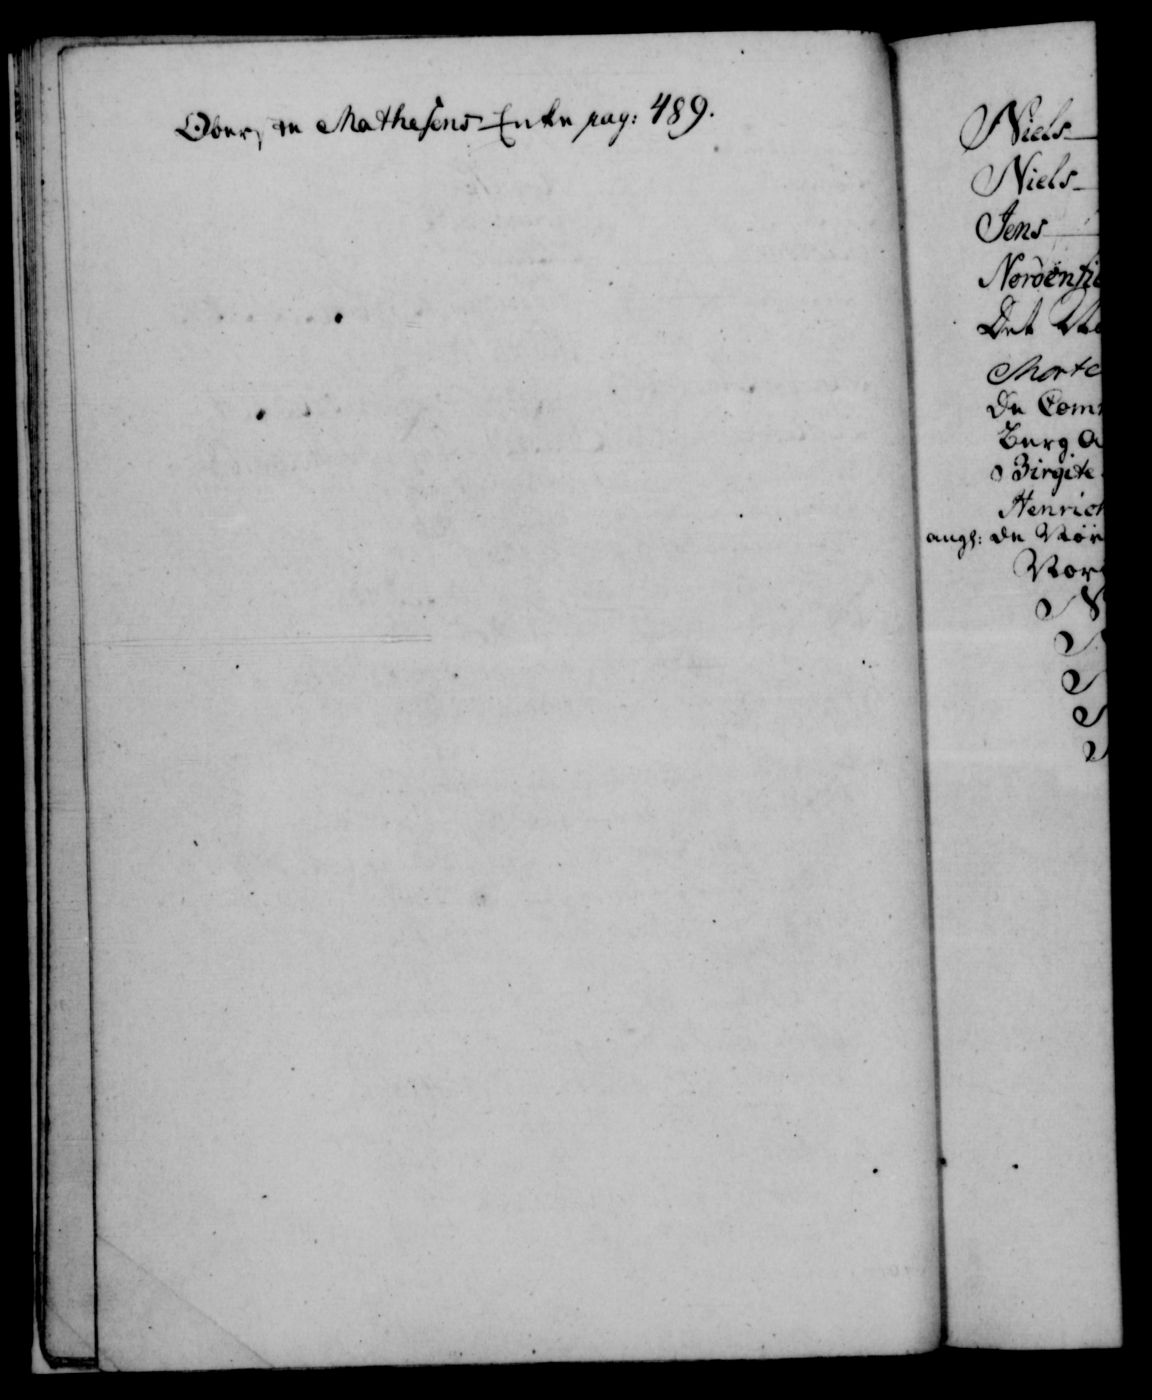 Oberste Mathesens Enke pag: 489.
Niels
Niels
Jens
Nordenfie
Det
Morte
De Com
Burg
Birgite
Henrich
ang: de Nor
Nor